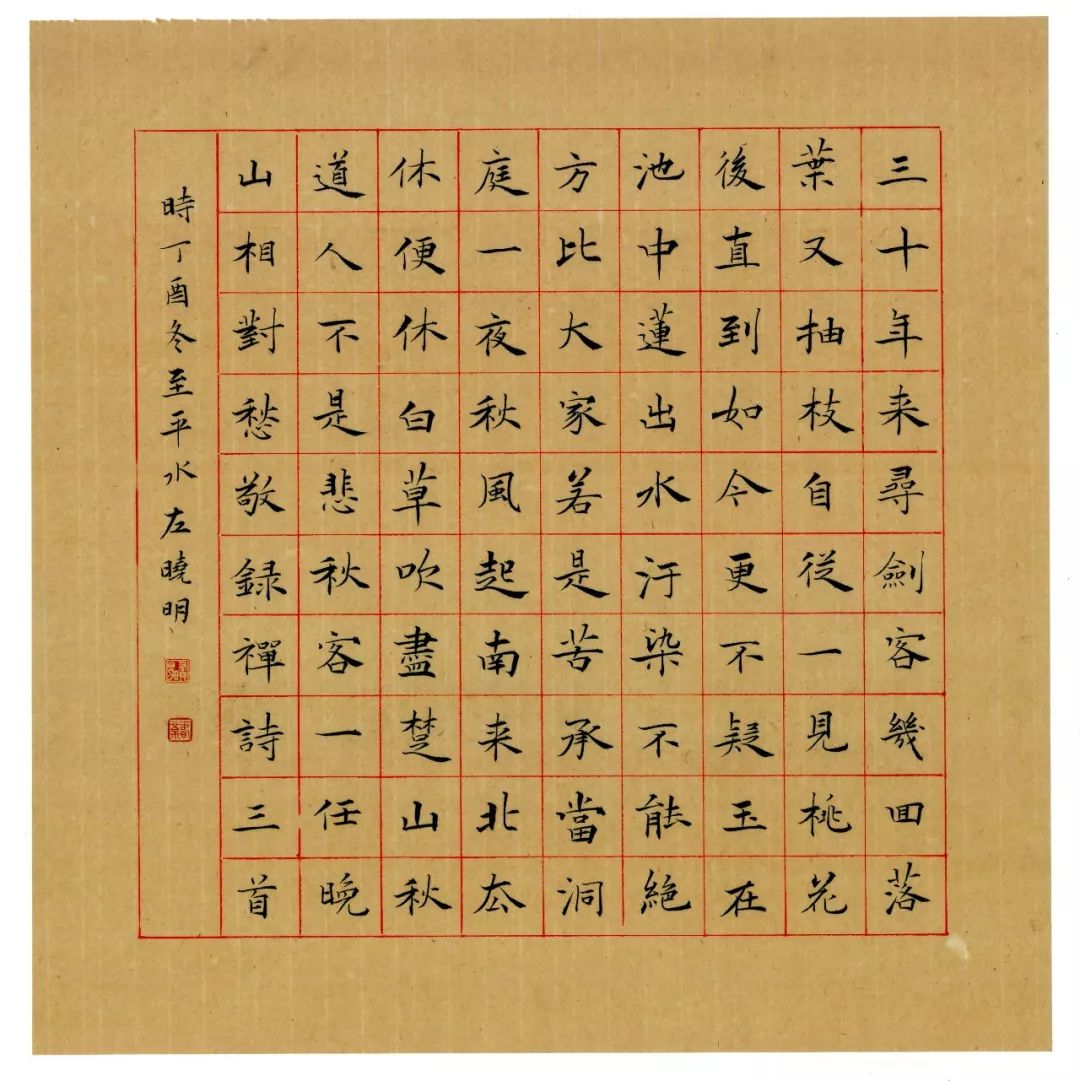 三十年来尋劍客幾回落
葉又抽枝自從一見桃花
後直到如今更不疑玉在
池中蓮出水汙染不能絕
方比大家若是苦承當洞
庭一夜秋風起南来北去
休便休白草吹盡楚山秋
道人不是悲秋客一任晚
山相對愁敬録禪詩三首
時丁酉冬至平水左曉明